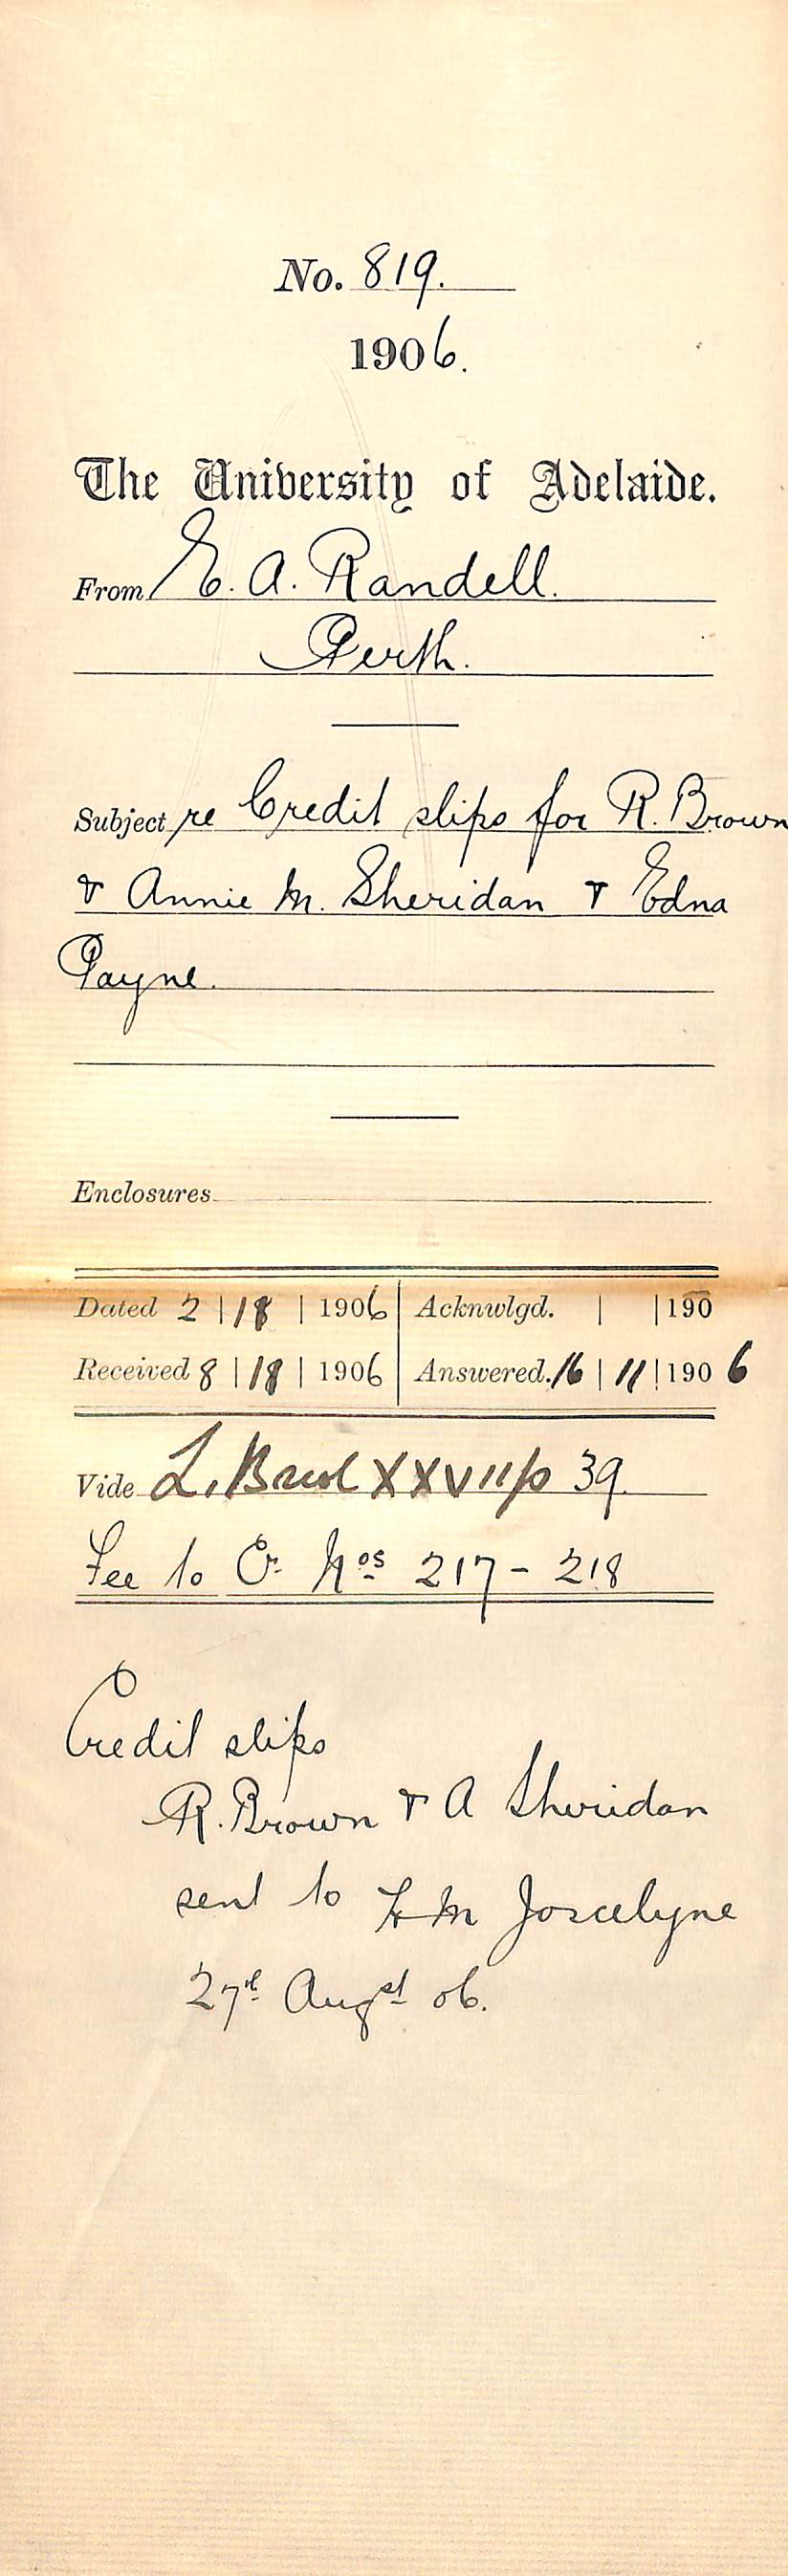 No. 819.
1906.
The University of Adelaide.
From E. A. Randell.
Perth.
Subject re Credit slips for R. Brown
& Annie M. Sheridan & Edna
Payne.
Enclosures
Dated 2 | | 1906 | Acknwlgd. | | 190
Received 8 | | 1906 | Answered. 16 | 11 | 1906
Vide L. XXVII p 39.
Fee to Nos 217 - 218
Credit slips
R. Brown & A Sheridan
sent to M Joscelyne
27th Augst 06.